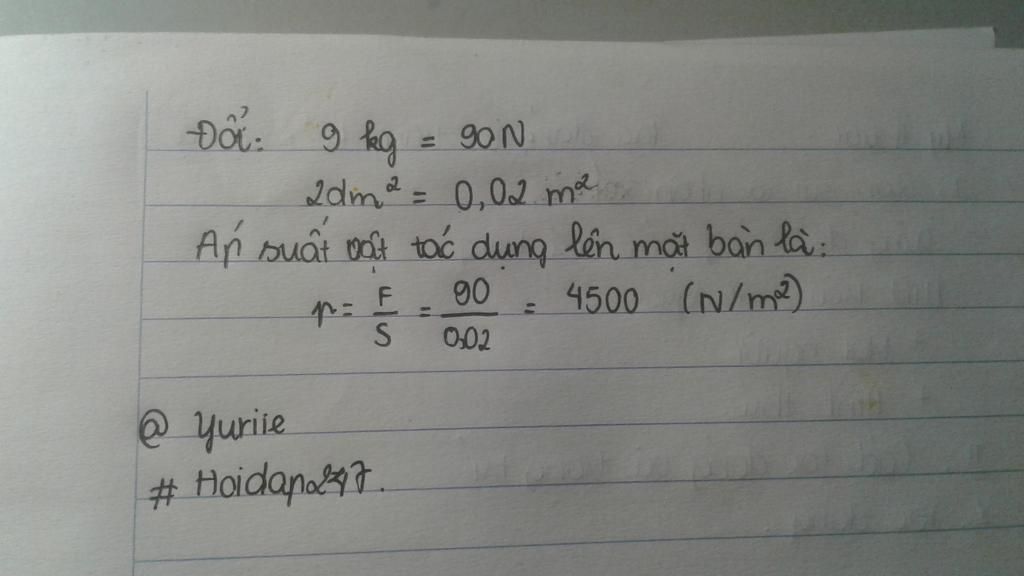 Đổi: 9 kg = 90N
2dm² = 0,02 m²
Áp suất vật tác dụng lên mặt bàn là:
p = F/S = 90/0,02 = 4500 (N/m²)
@ Yuriie
# Hoidap247.